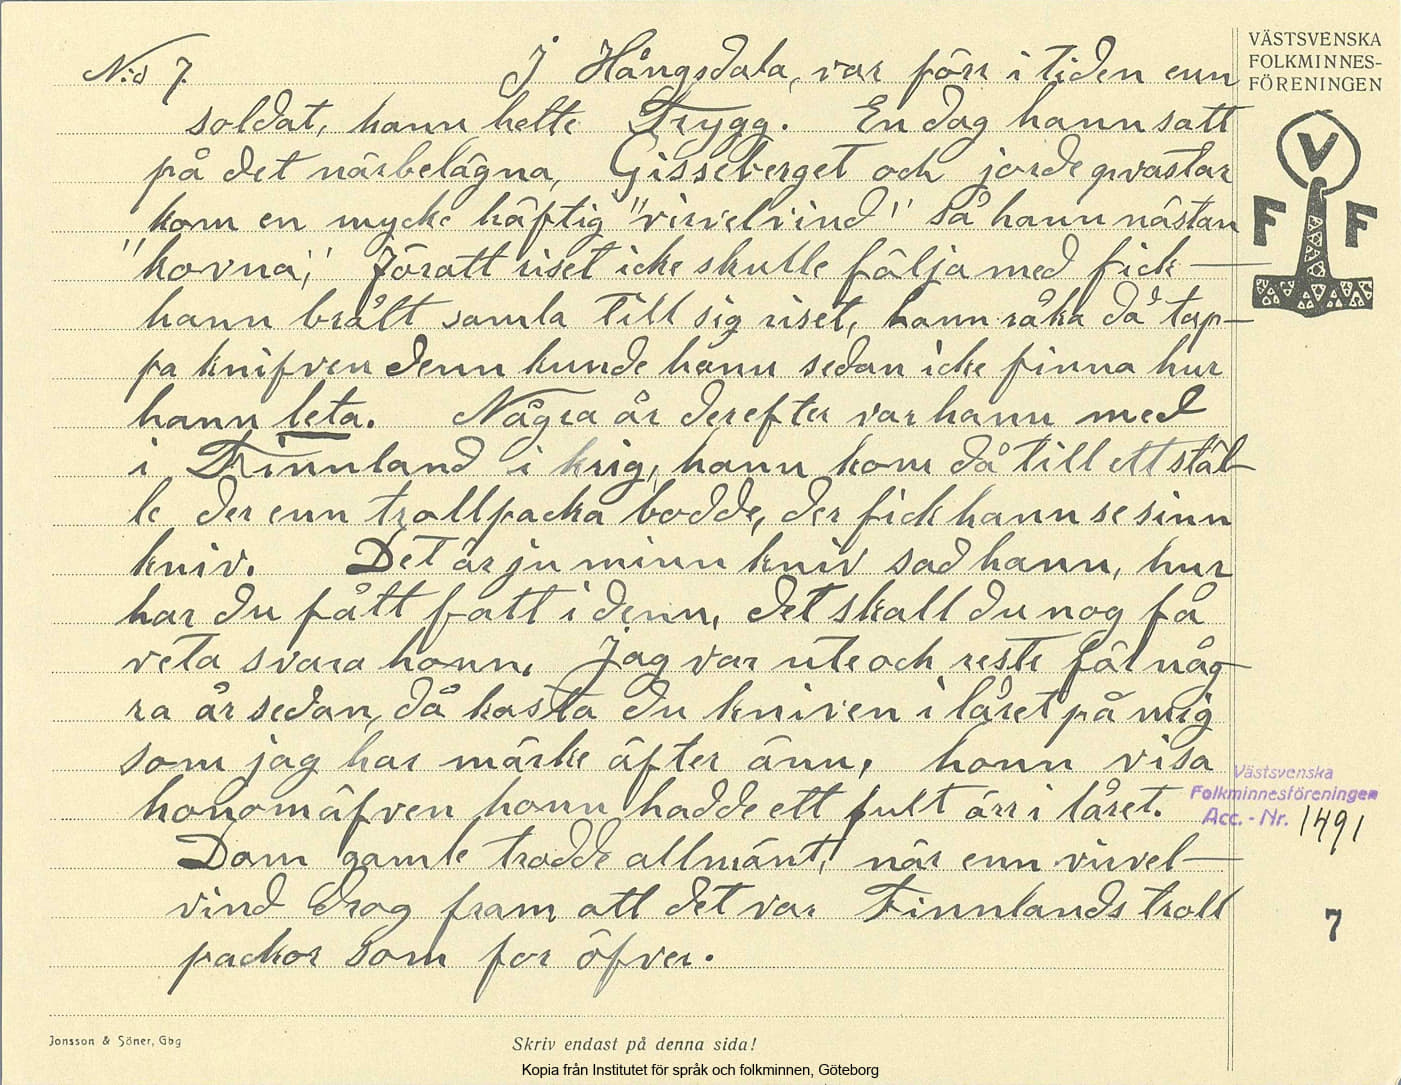 N:o 7. I Hångsdala, var förr i tiden enn
soldat, hann hette Trygg. En dag hann satt
på det närbelägna, Gisseberget och jorde qvastar
kom en mycke häftig "virvelvind" så hann nästan
"kovna," föratt riset icke skulle följa med fick
hann brått samla till sig riset, hann råka då tap-
pa knifven denn kunde hann sedan icke finna hur
hann leta. Några år derefter var hann med
i Finnland i krig, hann kom då till ett stäl-
le der enn trollpacka bodde, der fick hann se sinn
kniv. Det är ju minn kniv sad hann, hur
har du fått fatt i denn, det skall du nog få
veta svara honn. Jag var ute och reste för någ-
ra år sedan, då kasta du kniven i låret på mig
som jag har märke äfter änn, honn visa
honom äfven honn hadde ett fult ärr i låret.
Dom gamle trodde allmänt, när enn virvel-
vind drog fram att det var Finnlands troll
packor som for öfver.
VÄSTSVENSKA
FOLKMINNES-
FÖRENINGEN
V
F F
Västsvenska
Folkminnesföreningen
Acc. - Nr. 1491
7
Jonsson & Söner, Gbg
Skriv endast på denna sida!
Kopia från Institutet för språk och folkminnen, Göteborg